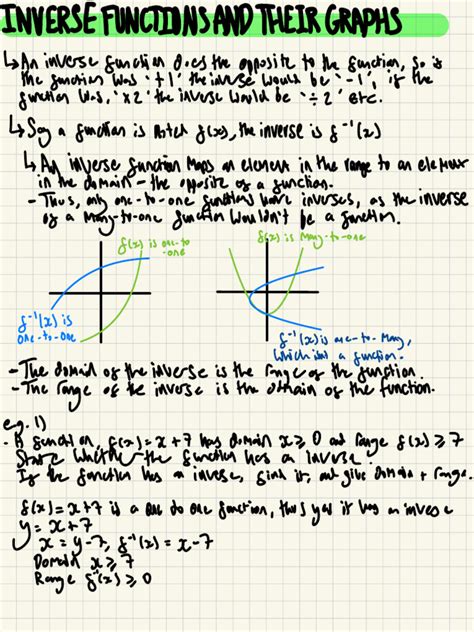 INVERSE FUNCTIONS AND THEIR GRAPHS
↳ An inverse function does the opposite to the function, so if
the function was '+1' the inverse would be '-1', if the
function was, 'x2' the inverse would be '÷2' etc.
↳ Say a function is noted f(x), the inverse is f⁻¹(x)
↳ An inverse function maps an element in the range to an element
in the domain – the opposite of a function.
- Thus, only one-to-one functions have inverses, as the inverse
of a many-to-one function wouldn't be a function.
f(x) is one-to
-one
f(x) is many-to-one
f⁻¹(x) is
one-to-one
f⁻¹(x) is one-to-many,
which isn't a function.
- The domain of the inverse is the range of the function.
- The range of the inverse is the domain of the function.
eg. 1)
- A function, f(x) = x+7 has domain x ≥ 0 and range f(x) ≥ 7
State whether the function has a inverse.
If the function has an inverse, find it, and give domain + range.
f(x) = x+7 is a one to one function, thus yes it has an inverse
y = x+7
x = y-7, f⁻¹(x) = x-7
Domain x ≥ 7
Range f⁻¹(x) ≥ 0